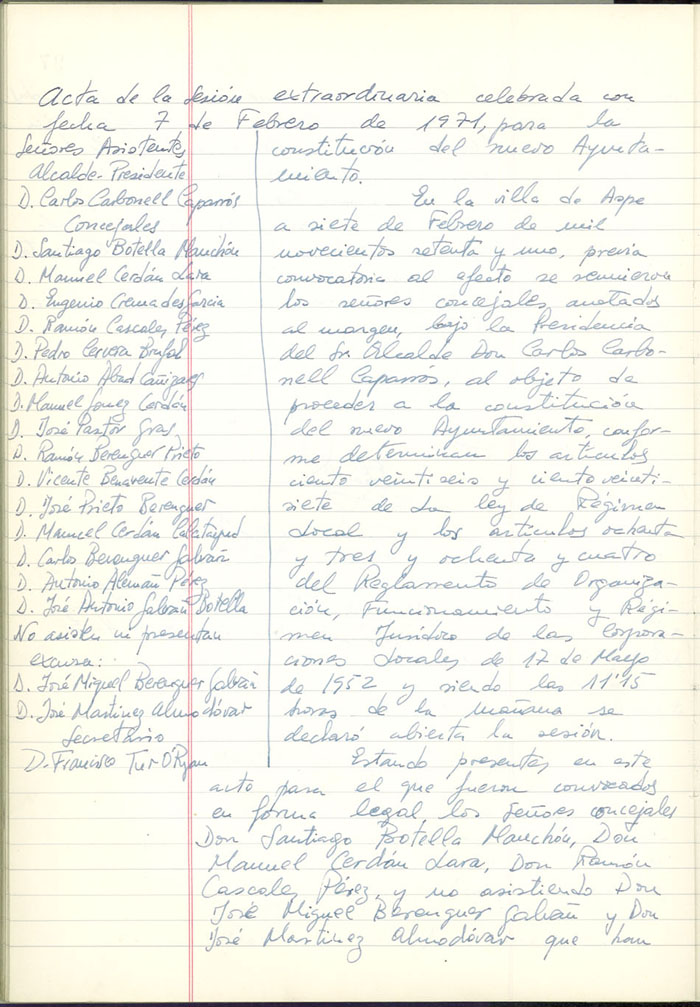 Acta de la Sesión extraordinaria celebrada con
fecha 7 de Febrero de 1971, para la
constitución del nuevo Ayunta-
miento.
Señores Asistentes
Alcalde-Presidente
D. Carlos Carbonell Caparrós
Concejales
D. Santiago Botella Manchón
D. Manuel Cerdán Lara
D. Eugenio Cremades Garcia
D. Ramón Cascales Pérez
D. Pedro Cervera Brufal
D. Antonio Abad Cañizares
D. Manuel Gomez Cerdán
D. José Pastor Gras
D. Ramón Berenguer Prieto
D. Vicente Benavente Cerdán
D. José Prieto Berenguer
D. Manuel Cerdán Calatayud
D. Carlos Berenguer Galvañ
D. Antonio Alemañ Pérez
D. José Antonio Galvañ Botella
No asisten ni presentan
excusa:
D. José Miguel Berenguer Galvañ
D. José Martinez Almodóvar
Secretario
D. Francisco Tur O'Ryan
En la villa de Aspe
a siete de Febrero de mil
novecientos setenta y uno, previa
convocatoria al efecto se reunieron
los señores concejales anotados
al margen, bajo la Presidencia
del Sr. Alcalde Don Carlos Carbo-
nell Caparrós, al objeto de
proceder a la constitución
del nuevo Ayuntamiento, confor-
me determinan los articulos
ciento veintiseis y ciento veinti-
siete de la ley de Régimen
Local y los articulos ochenta
y tres y ochenta y cuatro
del Reglamento de Organiza-
ción, Funcionamiento y Régi-
men Juridico de las Corpora-
ciones Locales de 17 de Mayo
de 1952 y siendo las 11'15
horas de la mañana se
declaró abierta la sesión.
Estando presentes en este
acto para el que fueron convocados
en forma legal los Señores concejales
Don Santiago Botella Manchón, Don
Manuel Cerdán Lara, Don Ramón
Cascales Pérez, y no asistiendo Don
José Miguel Berenguer Galvañ y Don
José Martinez Almodóvar que han